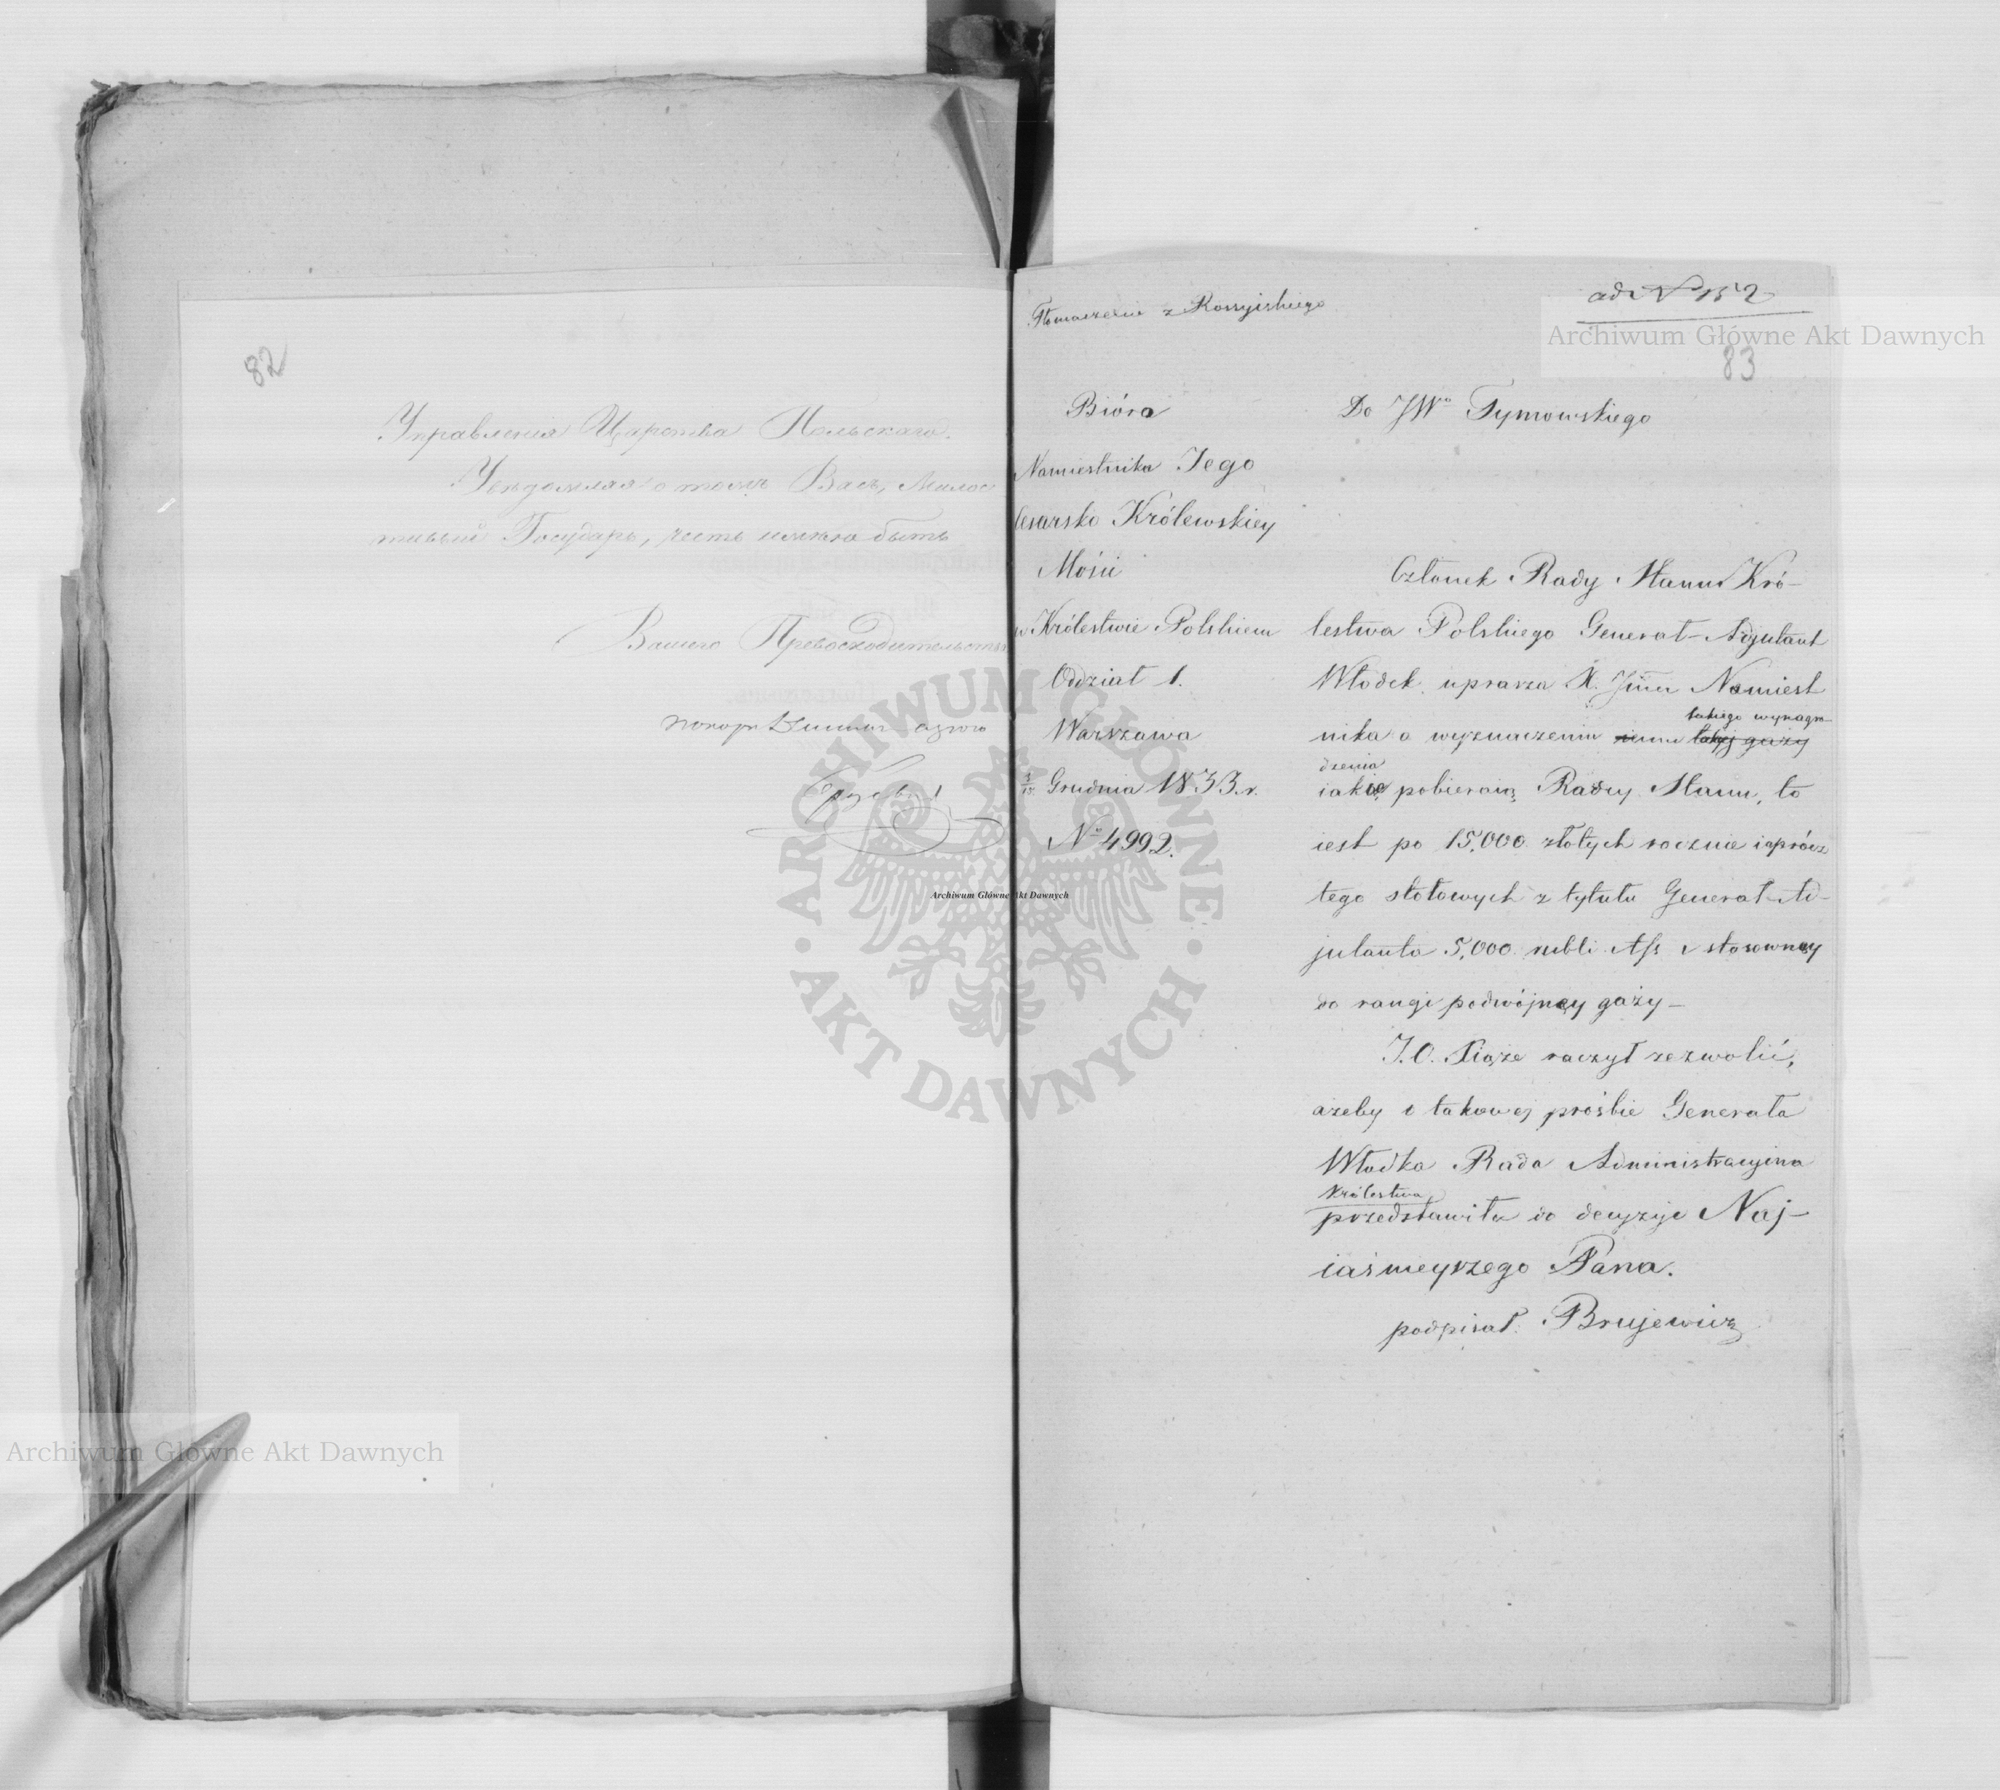 82
Управленія Царства Польскаго.
Увѣдомляя о томъ Васъ, Милос
тивый Государь, честь имѣю быть
Вашего Превосходительства
покорнѣйшій слуга
Tłomaczenie z Rossyiskiego
ad N 152
83
Bióra
Namiestnika Jego
Cesarsko Królewskiey
Mości
w Królestwie Polskiem
Oddział 1.
Warszawa
Grudnia 1833. r.
No 4992.
Do JWo Tymowskiego
Członek Rady Stanu Kró-
lestwa Polskiego Generał-Adjutant
Włodek uprasza X. Namiest
nika o wyznaczeniu takiey gaży takiego wynagro-
dzenia
iakie pobieraią Radcy Stanu, to
iest po 15,000 złotych rocznie i oprócz
tego stołowych z tytułu Generał-Ad-
jutanta 5,000 rubli Ass i stosowney
do rangi podwójney gaży-
J.O. Xiąże raczył zezwolić,
ażeby o takowej prośbie Generała
Włodka Rada Administracyina
Królestwa
przedstawiła do decyzyi Naj-
iaśnieyszego Pana.
podpisał Brujewicz
Archiwum Główne Akt Dawnych
Archiwum Główne Akt Dawnych
Archiwum Główne Akt Dawnych
ARCHIWUM GŁÓWNE • AKT DAWNYCH •